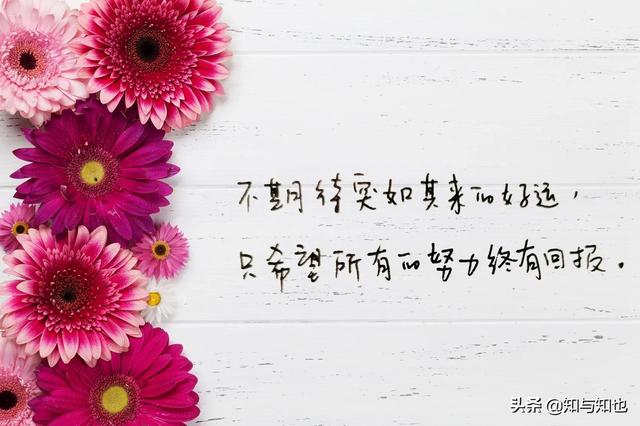 不期待突如其来的好运，
只希望所有的努力终有回报。
头条 @知与知也